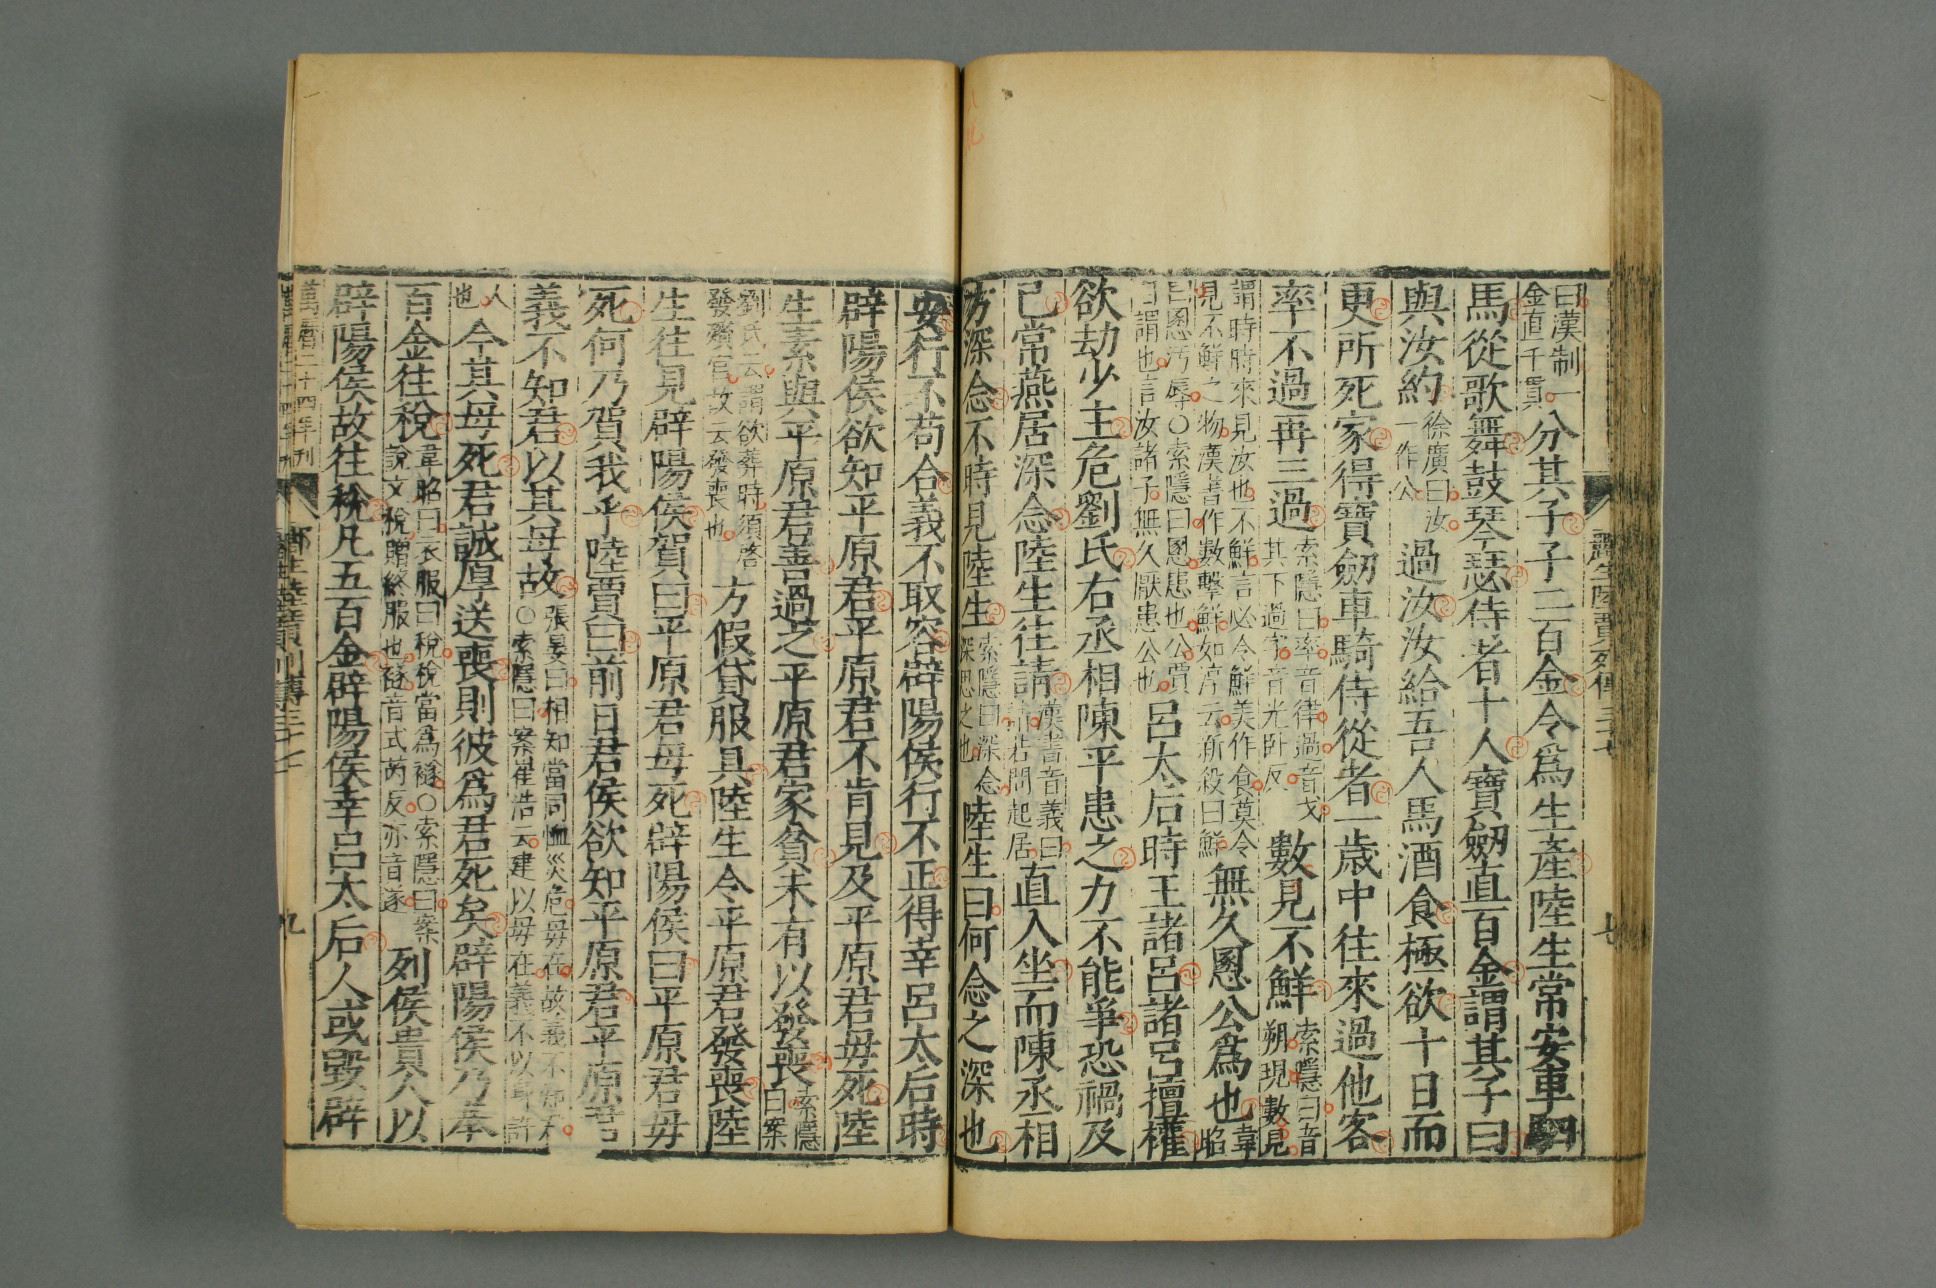 酈生陸賈列傳三十七 七
曰漢制一金直千貫分其子子二百金令為生產陸生常安車駟
馬從歌舞鼓琴瑟侍者十人寶劒直百金謂其子曰
與汝約徐廣曰汝一作公過汝汝給吾人馬酒食極欲十日而
更所死家得寶劒車騎侍從者一歲中往來過他客
率不過再三過索隱曰率音律過音戈其下過字音光卧反數見不鮮索隱曰音朔現數見
謂時時來見汝也不鮮言必令鮮美作食莫令見不鮮之物漢書作數擊鮮如淳云新殺曰鮮無久慁公為也韋昭
曰慁汚辱○索隱曰慁患也公賈自謂也言汝諸子無久厭患公也呂太后時王諸呂諸呂擅權
欲劫少主危劉氏右丞相陳平患之力不能爭恐禍及
己常燕居深念陸生往請漢書音義曰請若問起居直入坐而陳丞相
方深念不時見陸生索隱曰深念深思之也陸生曰何念之深也
安行不苟合義不取容辟陽侯行不正得幸呂太后時
辟陽侯欲知平原君平原君不肯見及平原君母死陸
生素與平原君善過之平原君家貧未有以發喪索隱曰案
劉氏云謂欲葬時須啓發殯宮故云發喪也方假貸服具陸生令平原君發喪陸
生往見辟陽侯賀曰平原君母死辟陽侯曰平原君母
死何乃賀我乎陸賈曰前日君侯欲知平原君平原君
義不知君以其母故張晏曰相知當同恤災危母在故義不知君○索隱曰案崔浩云建以母在義不以身許
人也今其母死君誠厚送喪則彼為君死矣辟陽侯乃奉
百金往稅韋昭曰衣服曰稅稅當為襚○索隱曰案說文稅贈終服也襚音式芮反亦音遂列侯貴人以
辟陽侯故往稅凡五百金辟陽侯幸呂太后人或毀辟
萬曆二十四年刊 酈生陸賈列傳三十七 九